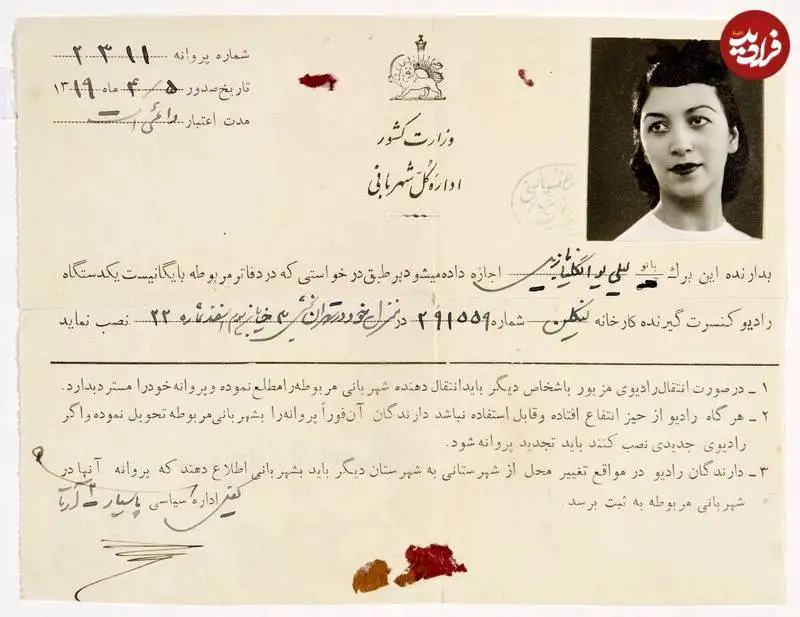 شماره پروانه ۲۳۱۱
تاریخ صدور ۴/۵ ماه ۱۳۱۹
مدت اعتبار
وزارت کشور
اداره کل شهربانی
فرادید
بدارنده این برك بانو لیلی اجازه داده میشود برطبق درخواستی که در دفاتر مربوطه بایگانیست یکدستگاه
رادیو کنسرت گیرنده کارخانه شماره ۲۹۱۵۵۹ در منزل خود در تهران بخش ۳ خیابان شماره ۲۲ نصب نماید
۱ ـ درصورت انتقال رادیوی مزبور باشخاص دیگر بایدانتقال دهنده شهربانی مربوطه رامطلع نموده و پروانه خودرا مسترد بدارد.
۲ ـ هر گاه رادیو از حیز انتفاع افتاده وقابل استفاده نباشد دارندگان آن فوراً پروانه را بشهربانی مربوطه تحویل نموده واگر
رادیوی جدیدی نصب کنند باید تجدید پروانه شود.
۳ ـ دارندگان رادیو در مواقع تغییر محل از شهرستانی به شهرستان دیگر باید بشهربانی اطلاع دهند که پروانه آنها در
شهربانی مربوطه به ثبت برسد.
کفیل اداره سیاسی پاسیار ۲